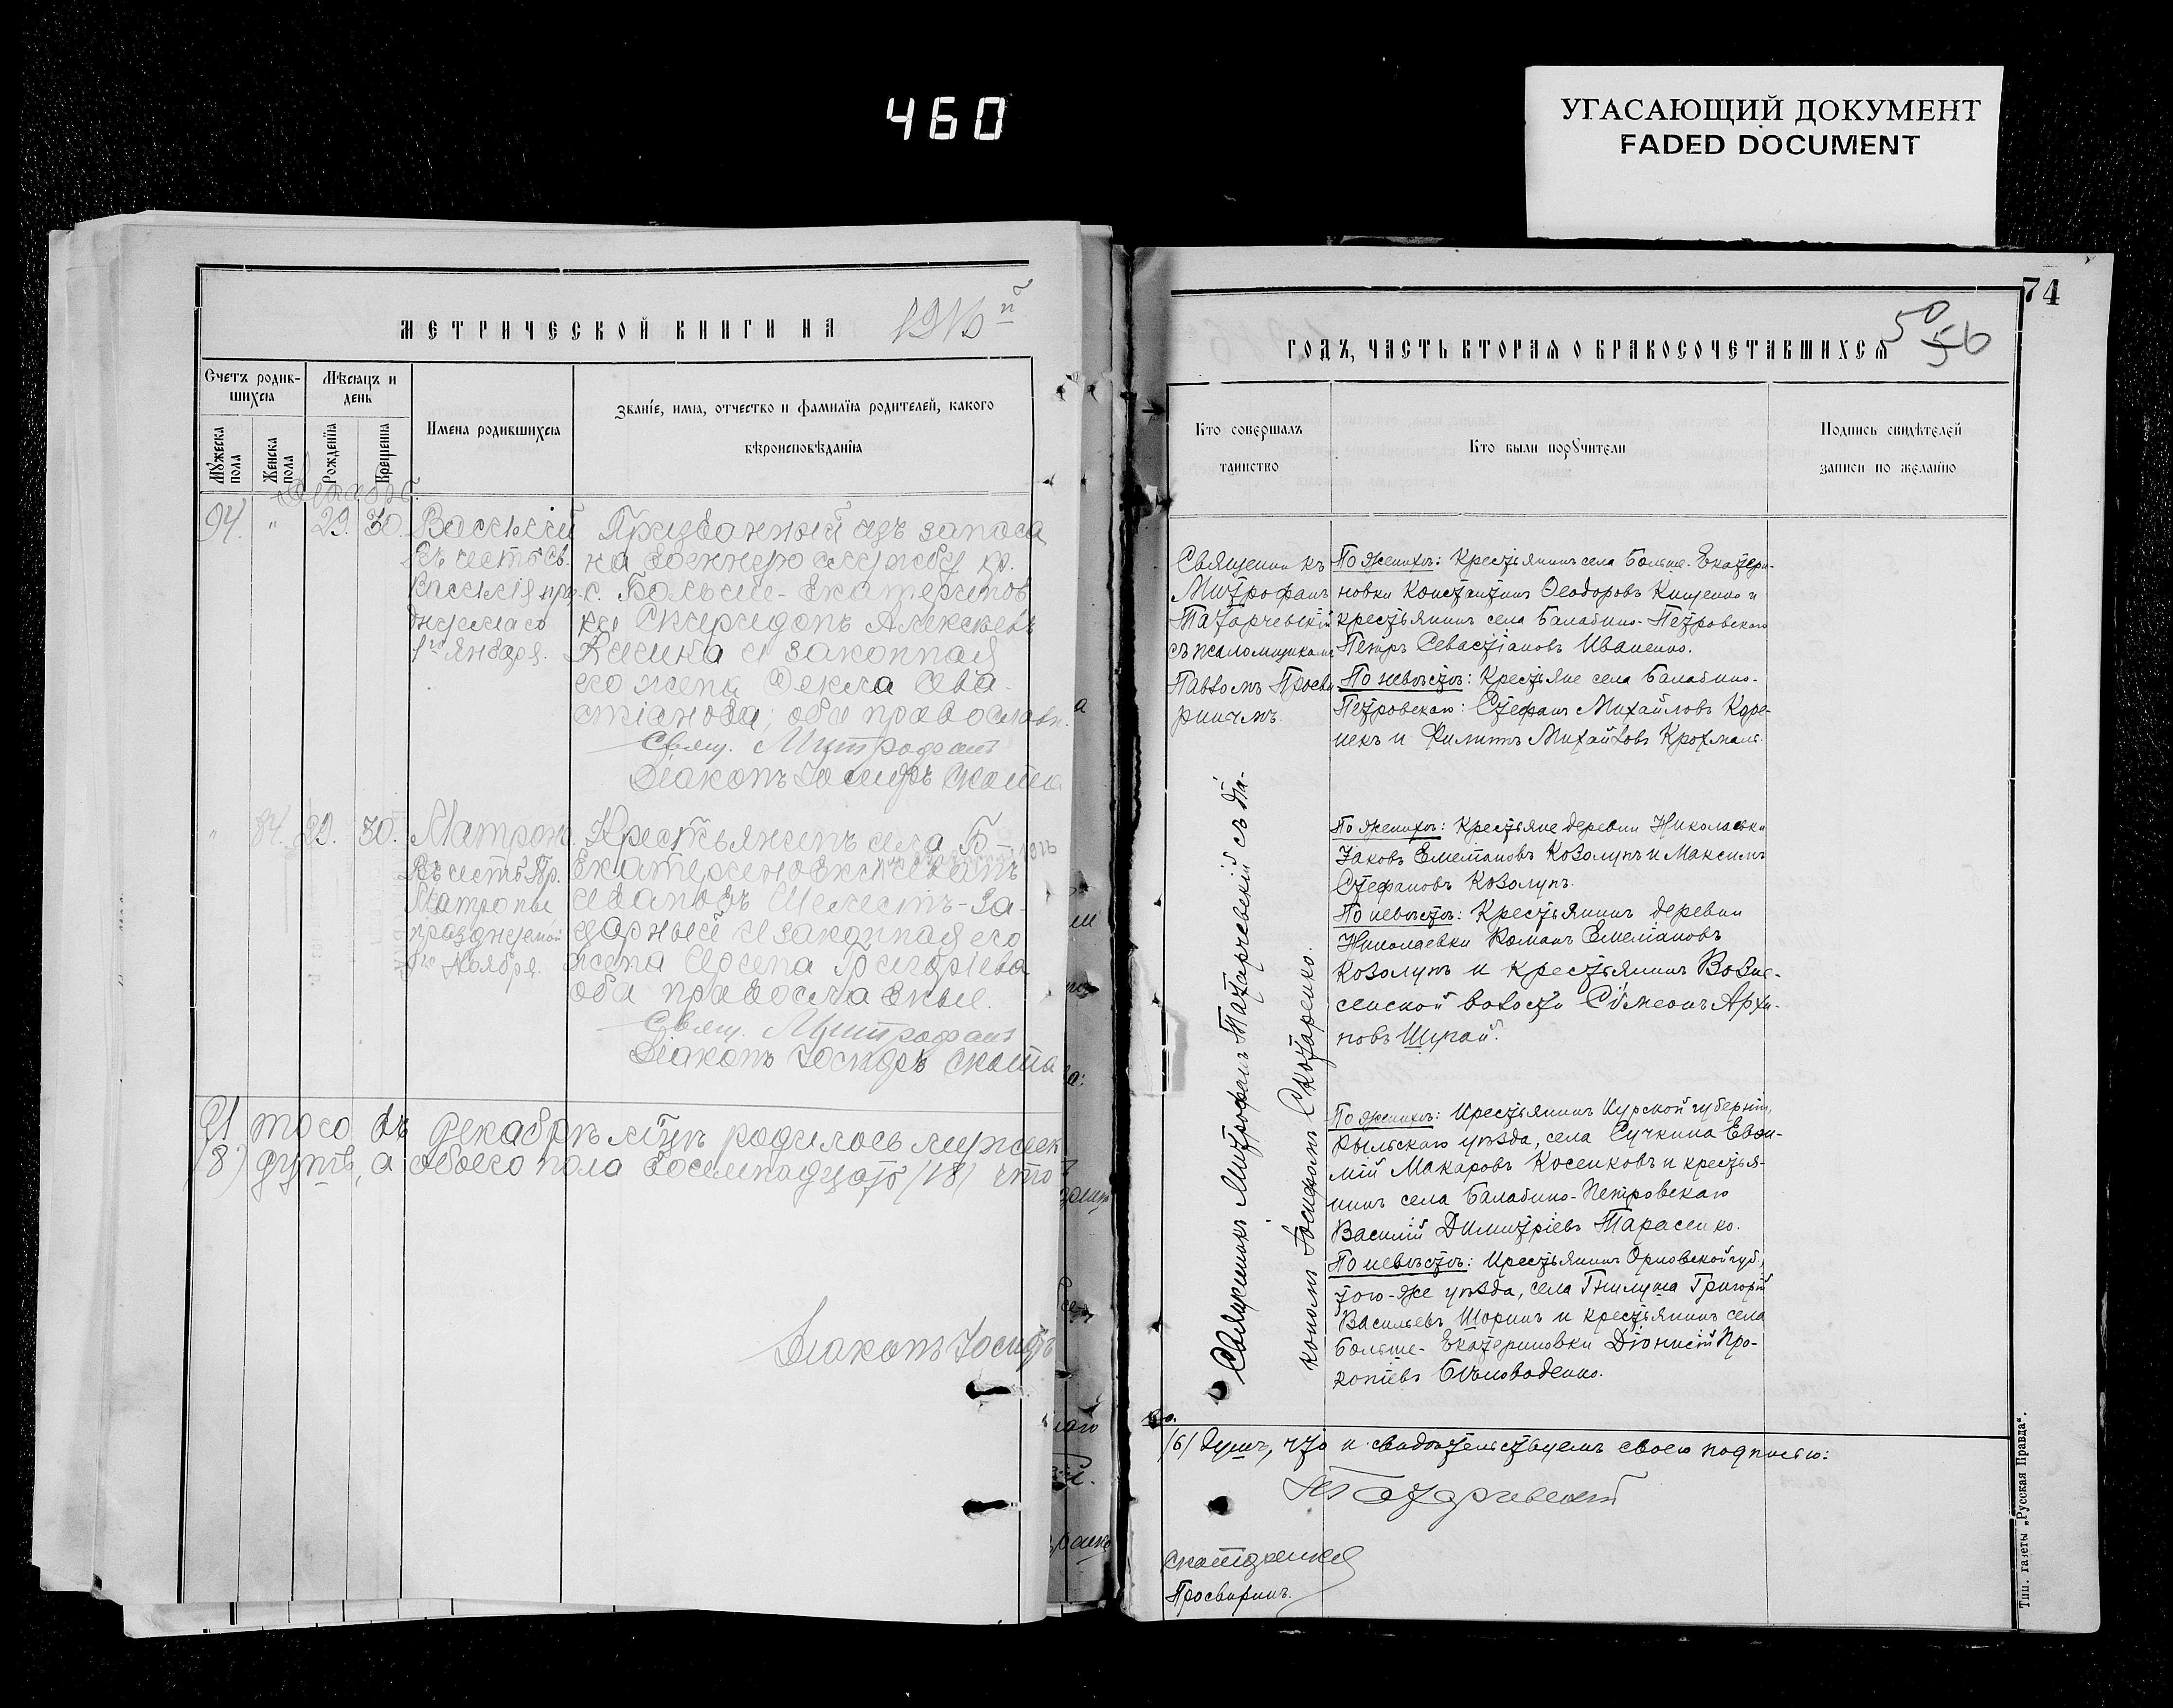 460
УГАСАЮЩИЙ ДОКУМЕНТ
FADED DOCUMENT
МЕТРИЧЕСКОЙ КНИГИ НА 1916й
Счетъ родив-
шихся
Мѣсяцъ и
день
Мужеска
пола
Женска
пола
Рожденїя
Крещенїя
Имена родившихся
Званїе, имя, отчество и фамилїя родителей, какого
вѣроисповѣданїя
Декабрь
94. " 29. 30. Василій Призванный изъ запаса
Въ честь Св. на военную службу кр.
Василія праз- с. Больше-Екатеринов
днуемаго ки Спиридонъ Алексѣевъ
1го Января. и законная
его жена Ѳекла Сева-
стіанова; оба православн.
Свящ. Митрофанъ
Діаконъ Іосифъ Скота
" 84. 29. 30. Матрона. Крестьянинъ села Б-
Въ честь Пр. Екатериновки
Матроны Ивановъ Шелестъ-За-
празднуемой дарный и законная его
Ноября. жена Григоріева
оба православные.
Свящ. Митрофанъ
Діаконъ Іосифъ Скота
того въ декабрѣ мѣцѣ родилось мужеск
(8) душъ, а обоего пола восемнадцать (18) что
Діаконъ Іосифъ
74
50
56
ГОДЪ, ЧАСТЬ ВТОРАЯ О БРАКОСОЧЕТАВШИХСЯ
Кто совершалъ
таинство
Кто были поручители
Подпись свидѣтелей
записи по желанїю
Священникъ
Митрофанъ
Татарчевскій
съ псаломщикомъ
Павломъ Просви
ринымъ.
По женихѣ: Крестьянинъ села Больше-Екатери-
новки Константинъ Ѳеодоровъ Кищенко и
крестьянинъ села Балабино-Петровскаго
Петръ Севастіановъ Иваненко.
По невѣстѣ: Крестьяне села Балабино-
Петровскаго: Стефанъ Михайловъ Коре-
некъ и Филиппъ Михайловъ Крохмаль.
Священникъ Митрофанъ Татарчевскій съ діа-
кономъ Іосифомъ Скотаренко.
По женихѣ: Крестьяне деревни Николаевки
Іаковъ Емеліановъ Козолупъ и Максимъ
Стефановъ Козолупъ.
По невѣстѣ: Крестьянинъ деревни
Николаевки Романъ Емеліановъ
Козолупъ и крестьянинъ Возне-
сенской волости Сѵмеонъ Архи-
повъ Шугай.
По женихѣ: Крестьянинъ Курской губерніи,
Рыльскаго уѣзда, села Сучкина Евѳи-
мій Макаровъ Косенковъ и крестья-
нинъ села Балабино-Петровскаго
Василій Димитріевъ Тарасенко.
По невѣстѣ: Крестьянинъ Орловской губ.,
того-же уѣзда, села Гнилуша Григорій
Васильевъ Шоринъ и крестьянинъ села
Больше-Екатериновки Діонисій Про-
копіевъ Бѣловоденко.
/6/ душъ, что и свидѣтельствуемъ своею подписью:
МТатарчевскій
Скотаренко
Просвиринъ.
Тип. газеты „Русская Правда“.